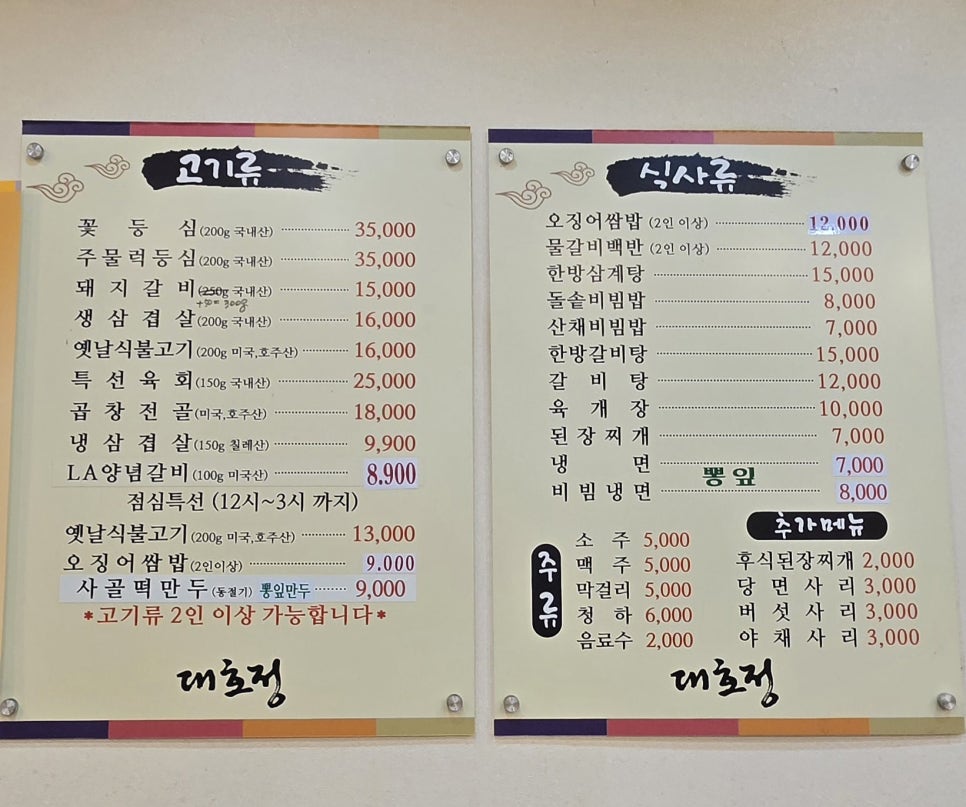 고기류
꽃등심(200g 국내산) 35,000
주물럭등심(200g 국내산) 35,000
돼지갈비(250g 국내산) 15,000
+50=300g
생삼겹살(200g 국내산) 16,000
옛날식불고기(200g 미국,호주산) 16,000
특선육회(150g 국내산) 25,000
곱창전골(미국,호주산) 18,000
냉삼겹살(150g 칠레산) 9,900
LA양념갈비(100g 미국산) 8.900
점심특선 (12시~3시 까지)
옛날식불고기(200g 미국,호주산) 13,000
오징어쌈밥(2인이상) 9.000
사골떡만두(동절기) 뽕잎만두 9,000
*고기류 2인 이상 가능합니다*
대호정
식사류
오징어쌈밥 (2인 이상) 12.000
물갈비백반 (2인 이상) 12,000
한방삼계탕 15,000
돌솥비빔밥 8,000
산채비빔밥 7,000
한방갈비탕 15,000
갈비탕 12,000
육개장 10,000
된장찌개 7,000
냉면 7,000
뽕잎
비빔냉면 8,000
주류
소주 5,000
맥주 5,000
막걸리 5,000
청하 6,000
음료수 2,000
추가메뉴
후식된장찌개 2,000
당면사리 3,000
버섯사리 3,000
야채사리 3,000
대호정